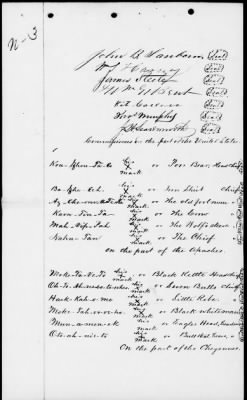 John B. Sanborn [Seal]
Wm S. Harney [Seal]
James Steele [Seal]
Wm W. Bent [Seal]
Kit Carson [Seal]
Thos Murphy [Seal]
J. H. Leavenworth [Seal]
Commissioners on the part of the United States
his x mark or Poor Bear, Head chief
Ba-zhe-ech his x mark or Iron Shirt chief
his x mark or The old fool man
his x mark or The Crow
Mah-Nip-Tah his x mark or The Wolf Sleeve
Nahn-Tan his x mark or The Chief
On the part of the Apaches.
Moke-Ta-Ve-To his x mark or Black Kettle Head chief
his x mark or Seven Bulls Chief
Hark-Kah-o-me his x mark or Little Robe
his x mark or Black white man
Mun-a-men-ek his x mark or Eagles Head, headman
O-to-ah-nis-to his x mark or Bull that Hears
On the part of the Cheyennes.